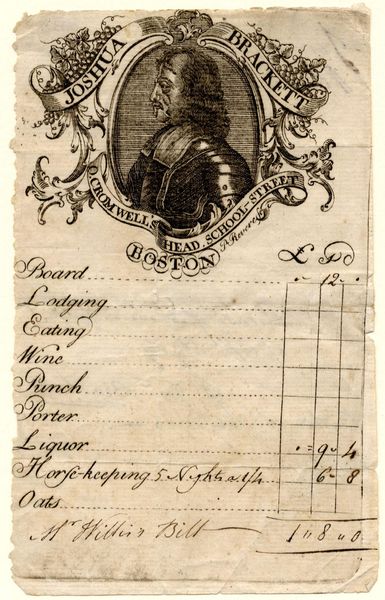 JOSHUA BRACKETT
O. CROMWELL'S HEAD SCHOOL-STREET
BOSTON
P. Revere
£ s d
Board 12 "
Lodging
Eating
Wine
Punch
Porter
Liquor " = 9 " 4
Horse-keeping 5 Nights a 1/4 6 " 8
Oats
Mr Willis's Bill 1 " 8 " 0